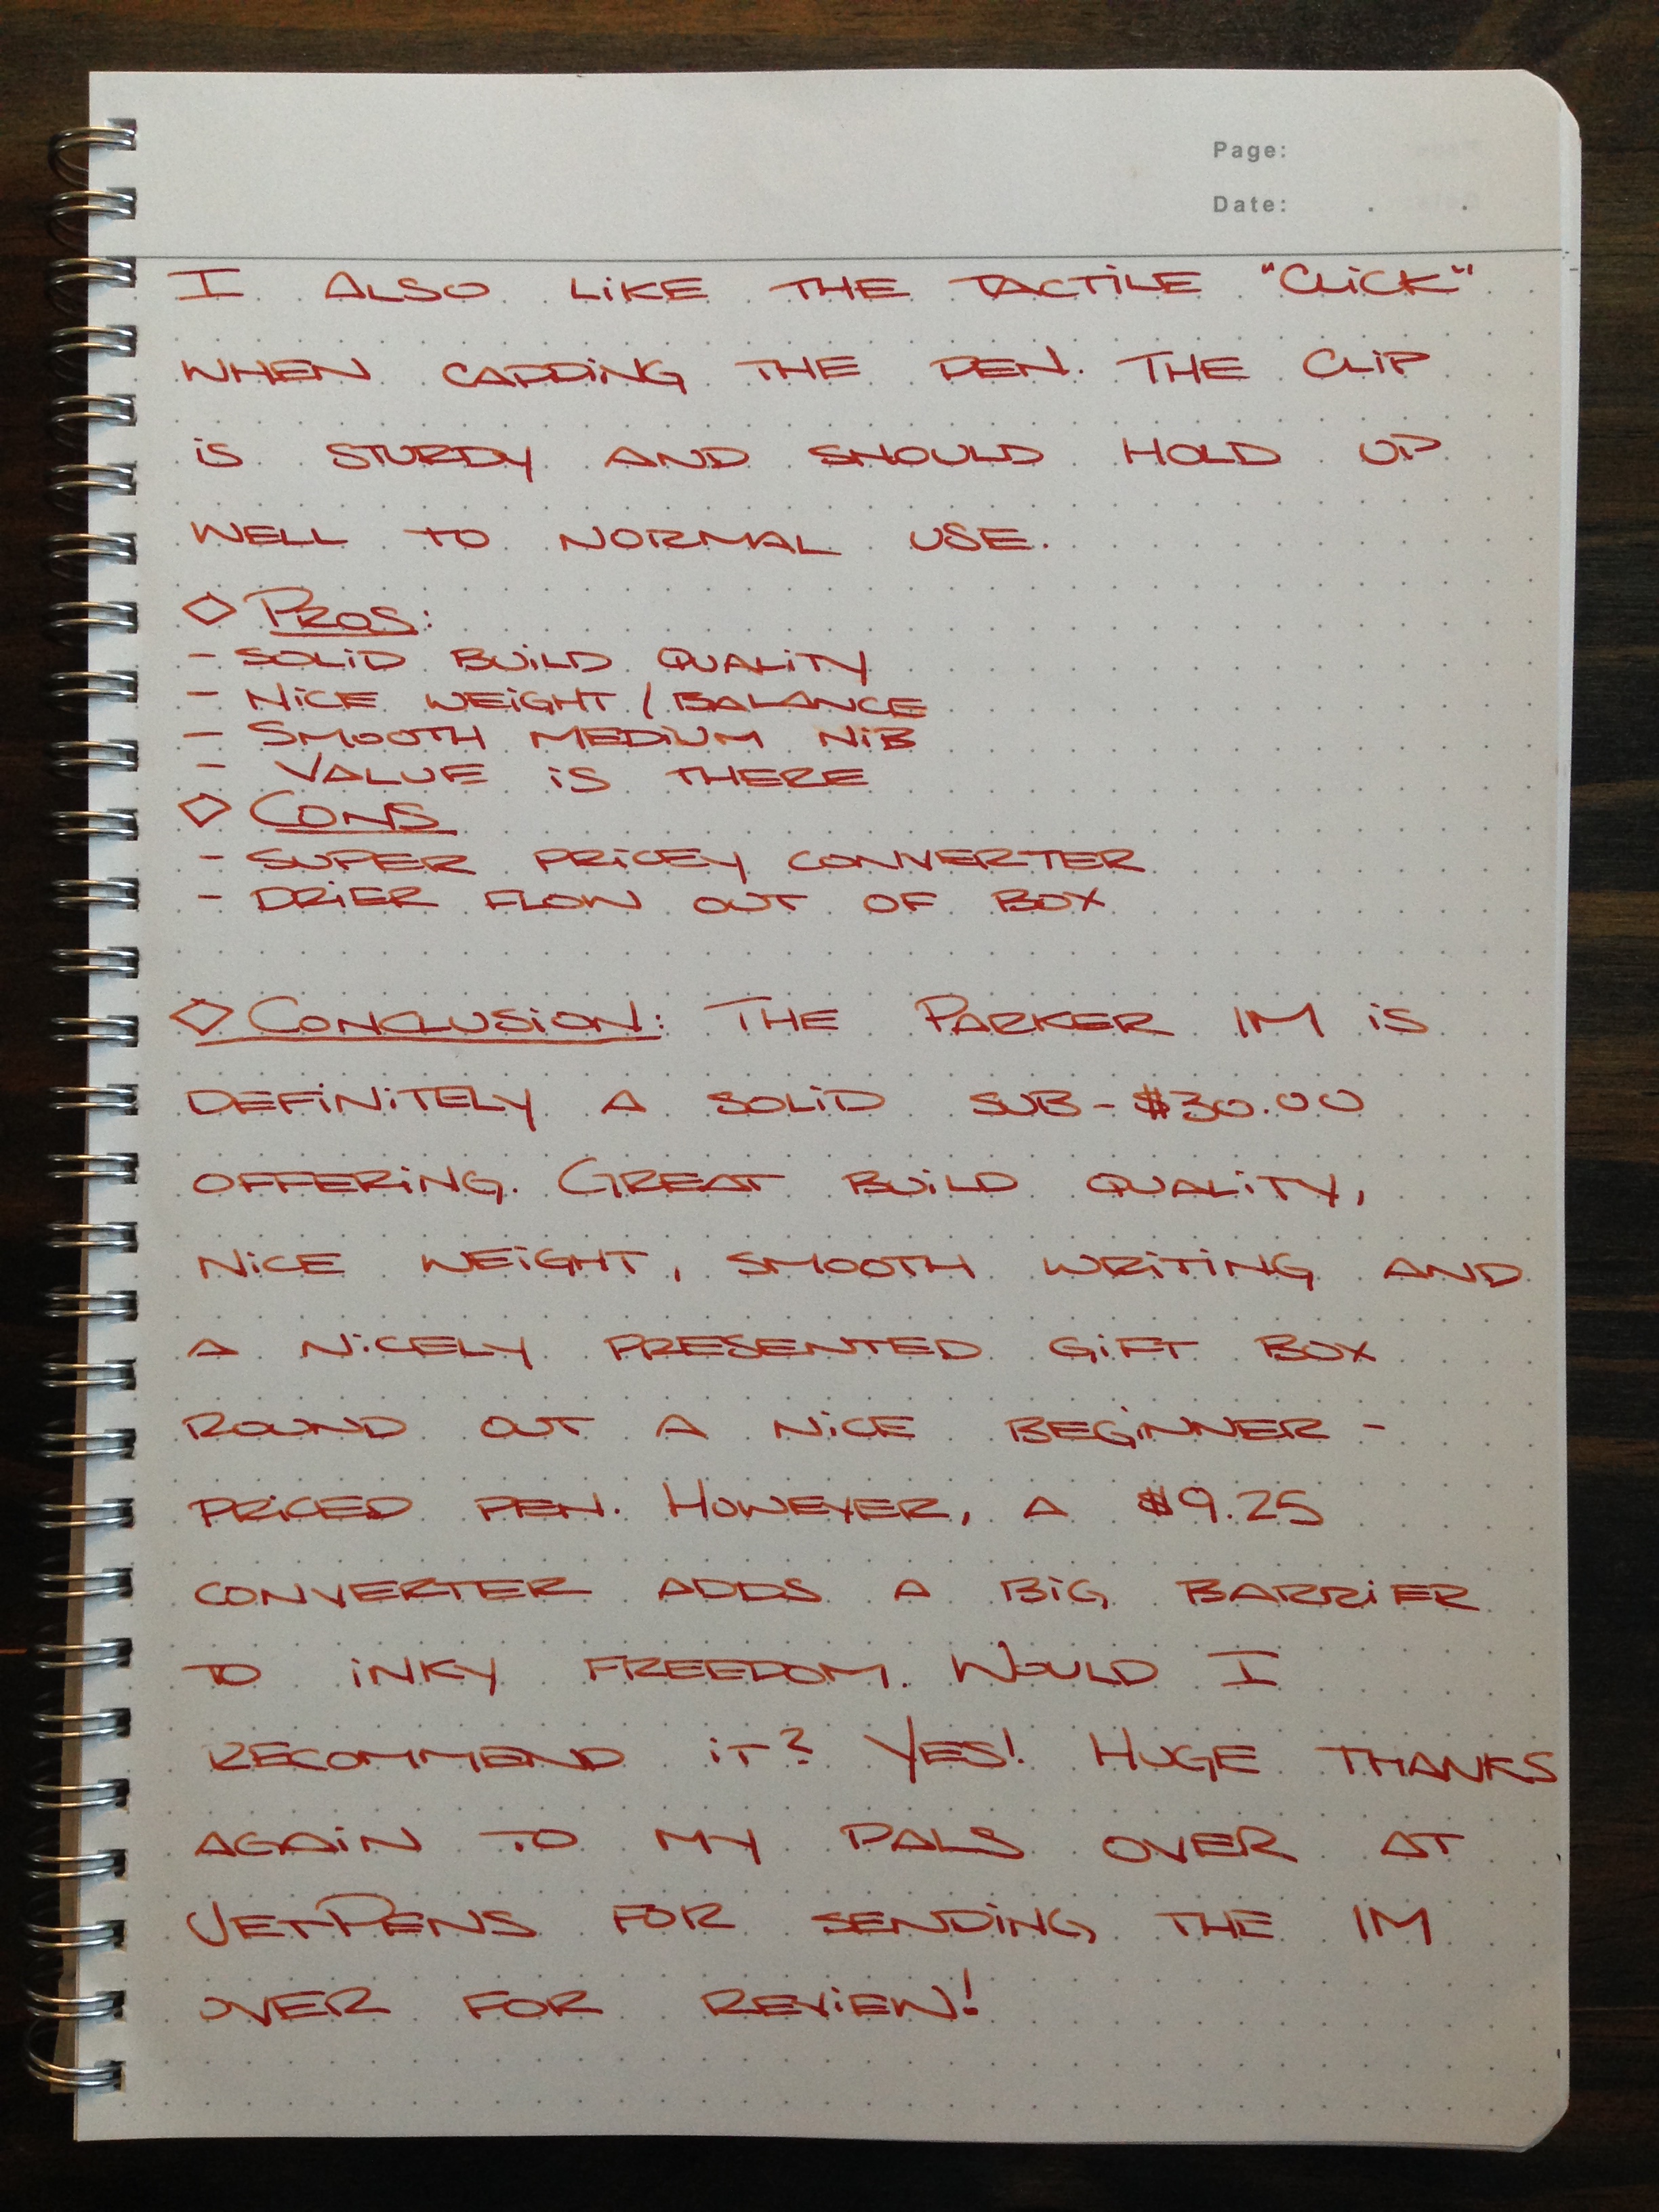 Page:
Date: . .
I ALSO LIKE THE TACTILE "CLICK"
WHEN CAPPING THE PEN. THE CLIP
IS STURDY AND SHOULD HOLD UP
WELL TO NORMAL USE.
◇ PROS:
- SOLID BUILD QUALITY
- NICE WEIGHT / BALANCE
- SMOOTH MEDIUM NIB
- VALUE IS THERE
◇ CONS
- SUPER PRICEY CONVERTER
- DRIER FLOW OUT OF BOX
◇ CONCLUSION: THE PARKER IM IS
DEFINITELY A SOLID SUB-$30.00
OFFERING. GREAT BUILD QUALITY,
NICE WEIGHT, SMOOTH WRITING AND
A NICELY PRESENTED GIFT BOX
ROUND OUT A NICE BEGINNER-
PRICED PEN. HOWEVER, A $9.25
CONVERTER ADDS A BIG BARRIER
TO INKY FREEDOM. WOULD I
RECOMMEND IT? YES! HUGE THANKS
AGAIN TO MY PALS OVER AT
JETPENS FOR SENDING THE IM
OVER FOR REVIEW!